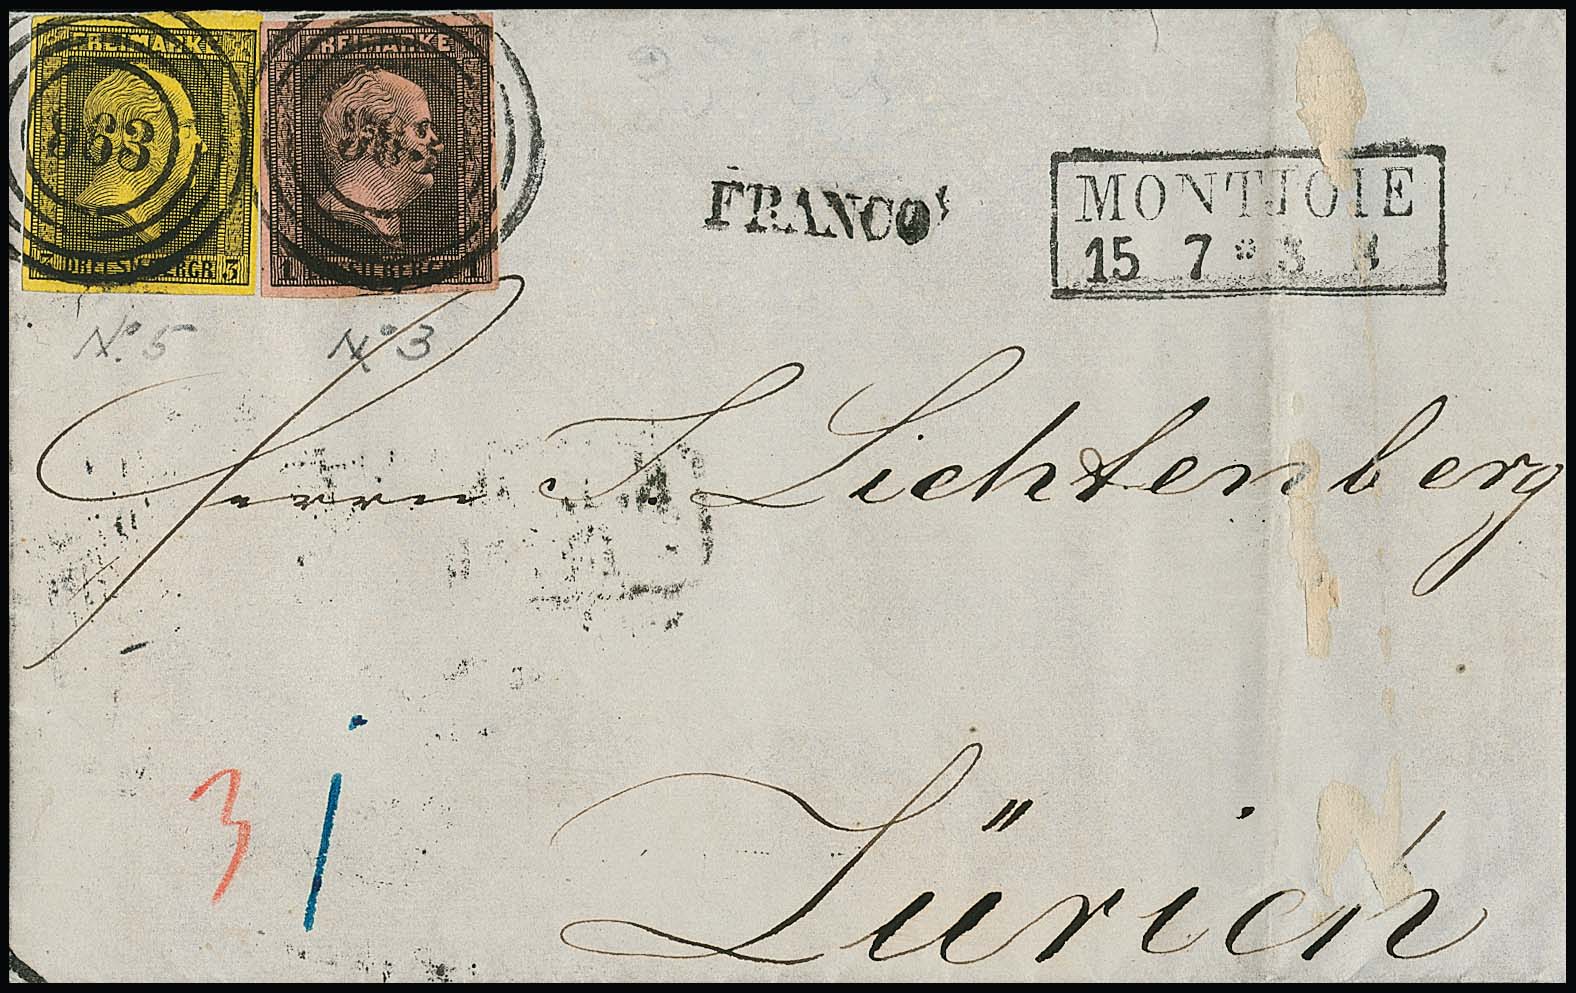 FREIMARKE
FREIMARKE
3 DREI SILBERGR 3
1 SILBERGR 1
No. 5
No 3
FRANCO
MONTJOIE
15 7 * 3
Herrn J. Lichtenberg
3
1
Zürich